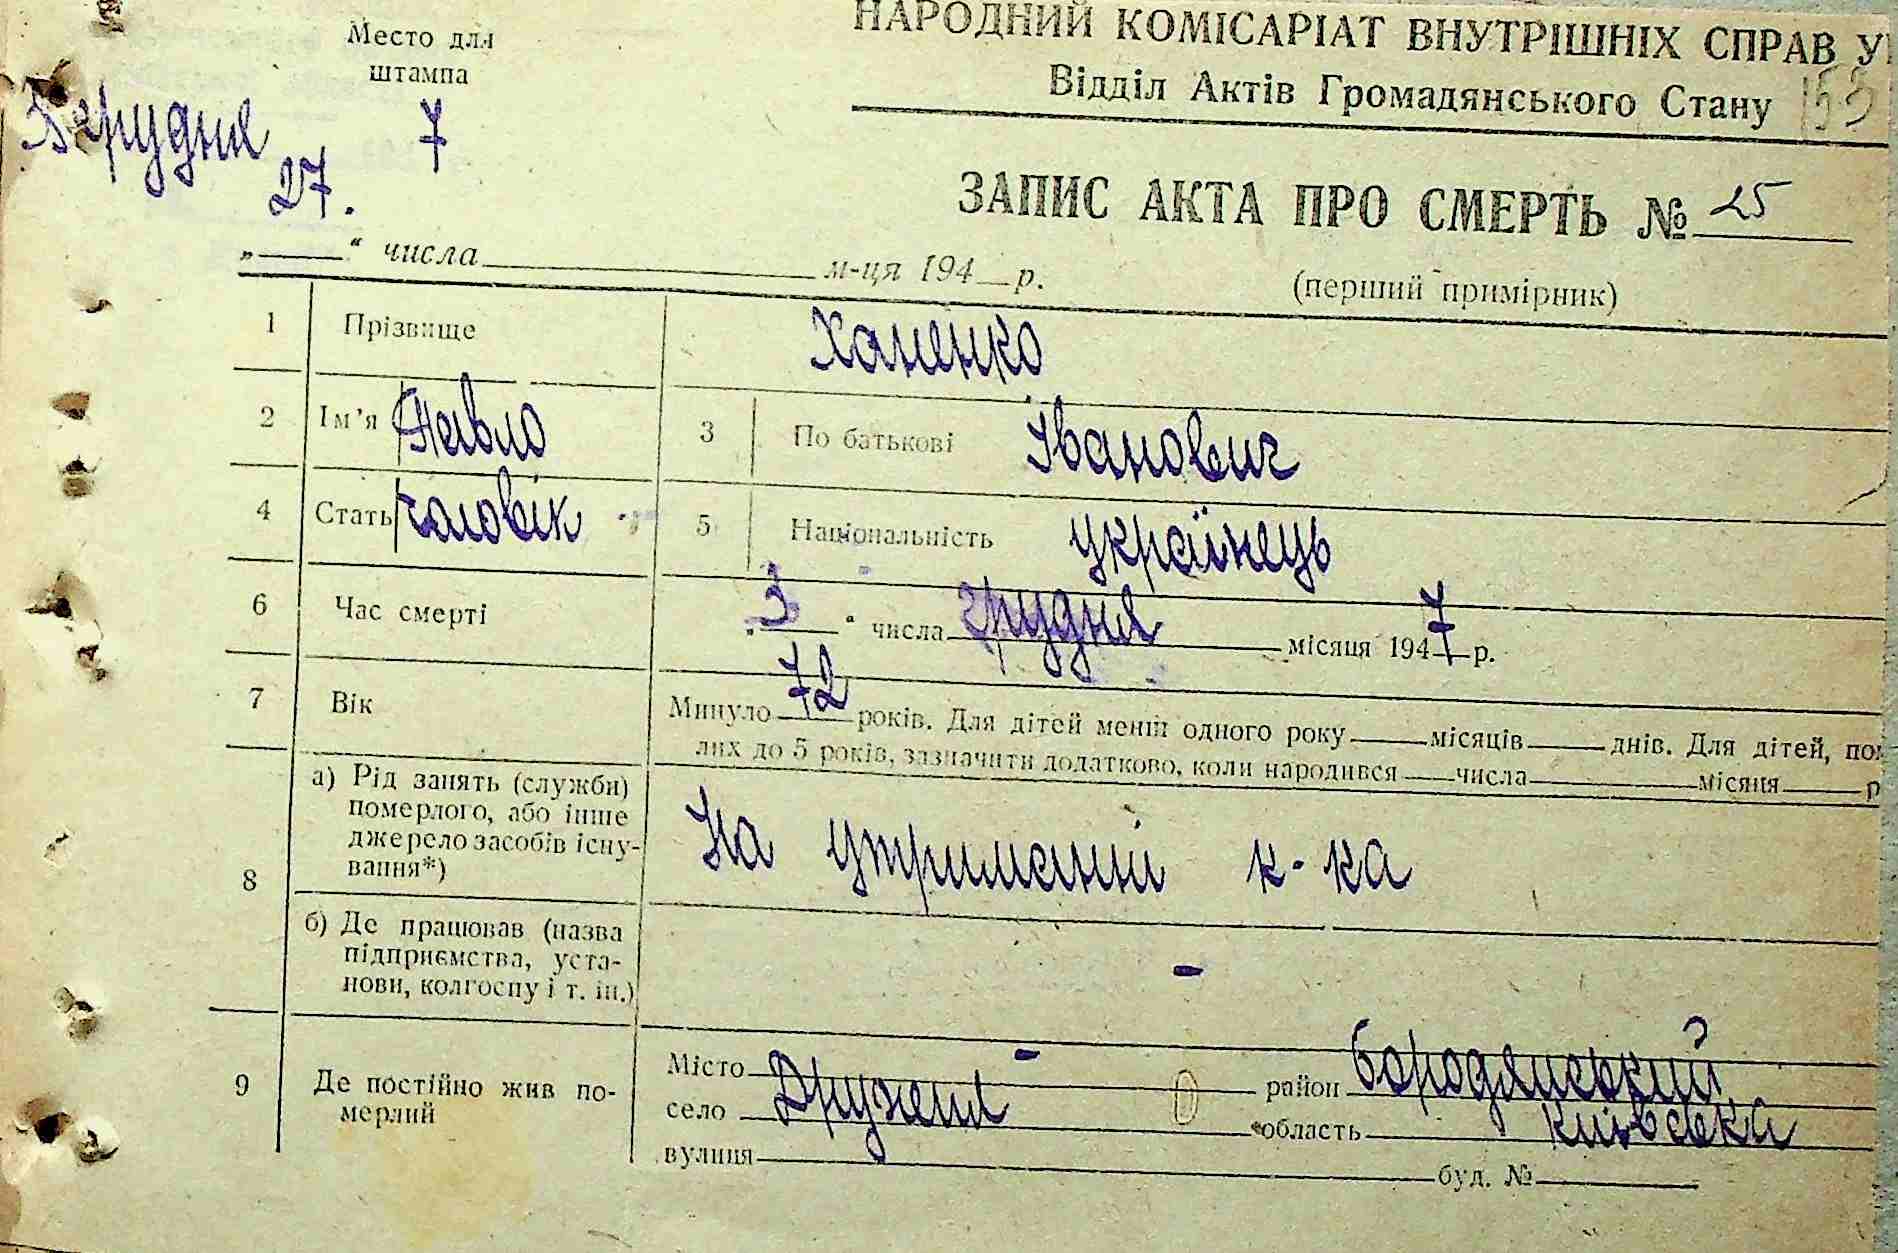 Место для
штампа
НАРОДНИЙ КОМІСАРІАТ ВНУТРІШНІХ СПРАВ У
Відділ Актів Громадянського Стану
153
грудня 7
27.
ЗАПИС АКТА ПРО СМЕРТЬ № 25
„ “ числа м-ця 194 р.
(перший примірник)
1 Прізвище Ханенко
2 Ім'я Павло 3 По батькові Іванович
4 Стать чоловік 5 Національність українець
6 Час смерті „3“ числа грудня місяця 1947 р.
7 Вік Минуло 72 років. Для дітей менш одного року місяців днів. Для дітей, по
лих до 5 років, зазначити додатково, коли народився числа місяця р
8 а) Рід занять (служби)
померлого, або інше
джерело засобів існу-
вання*)
На утриманні к-ка
б) Де працював (назва
підприємства, уста-
нови, колгоспу і т. ін.)
-
9 Де постійно жив по-
мерлий
Місто - район Бородянський
село Дружня область Київська
вулиця буд. №